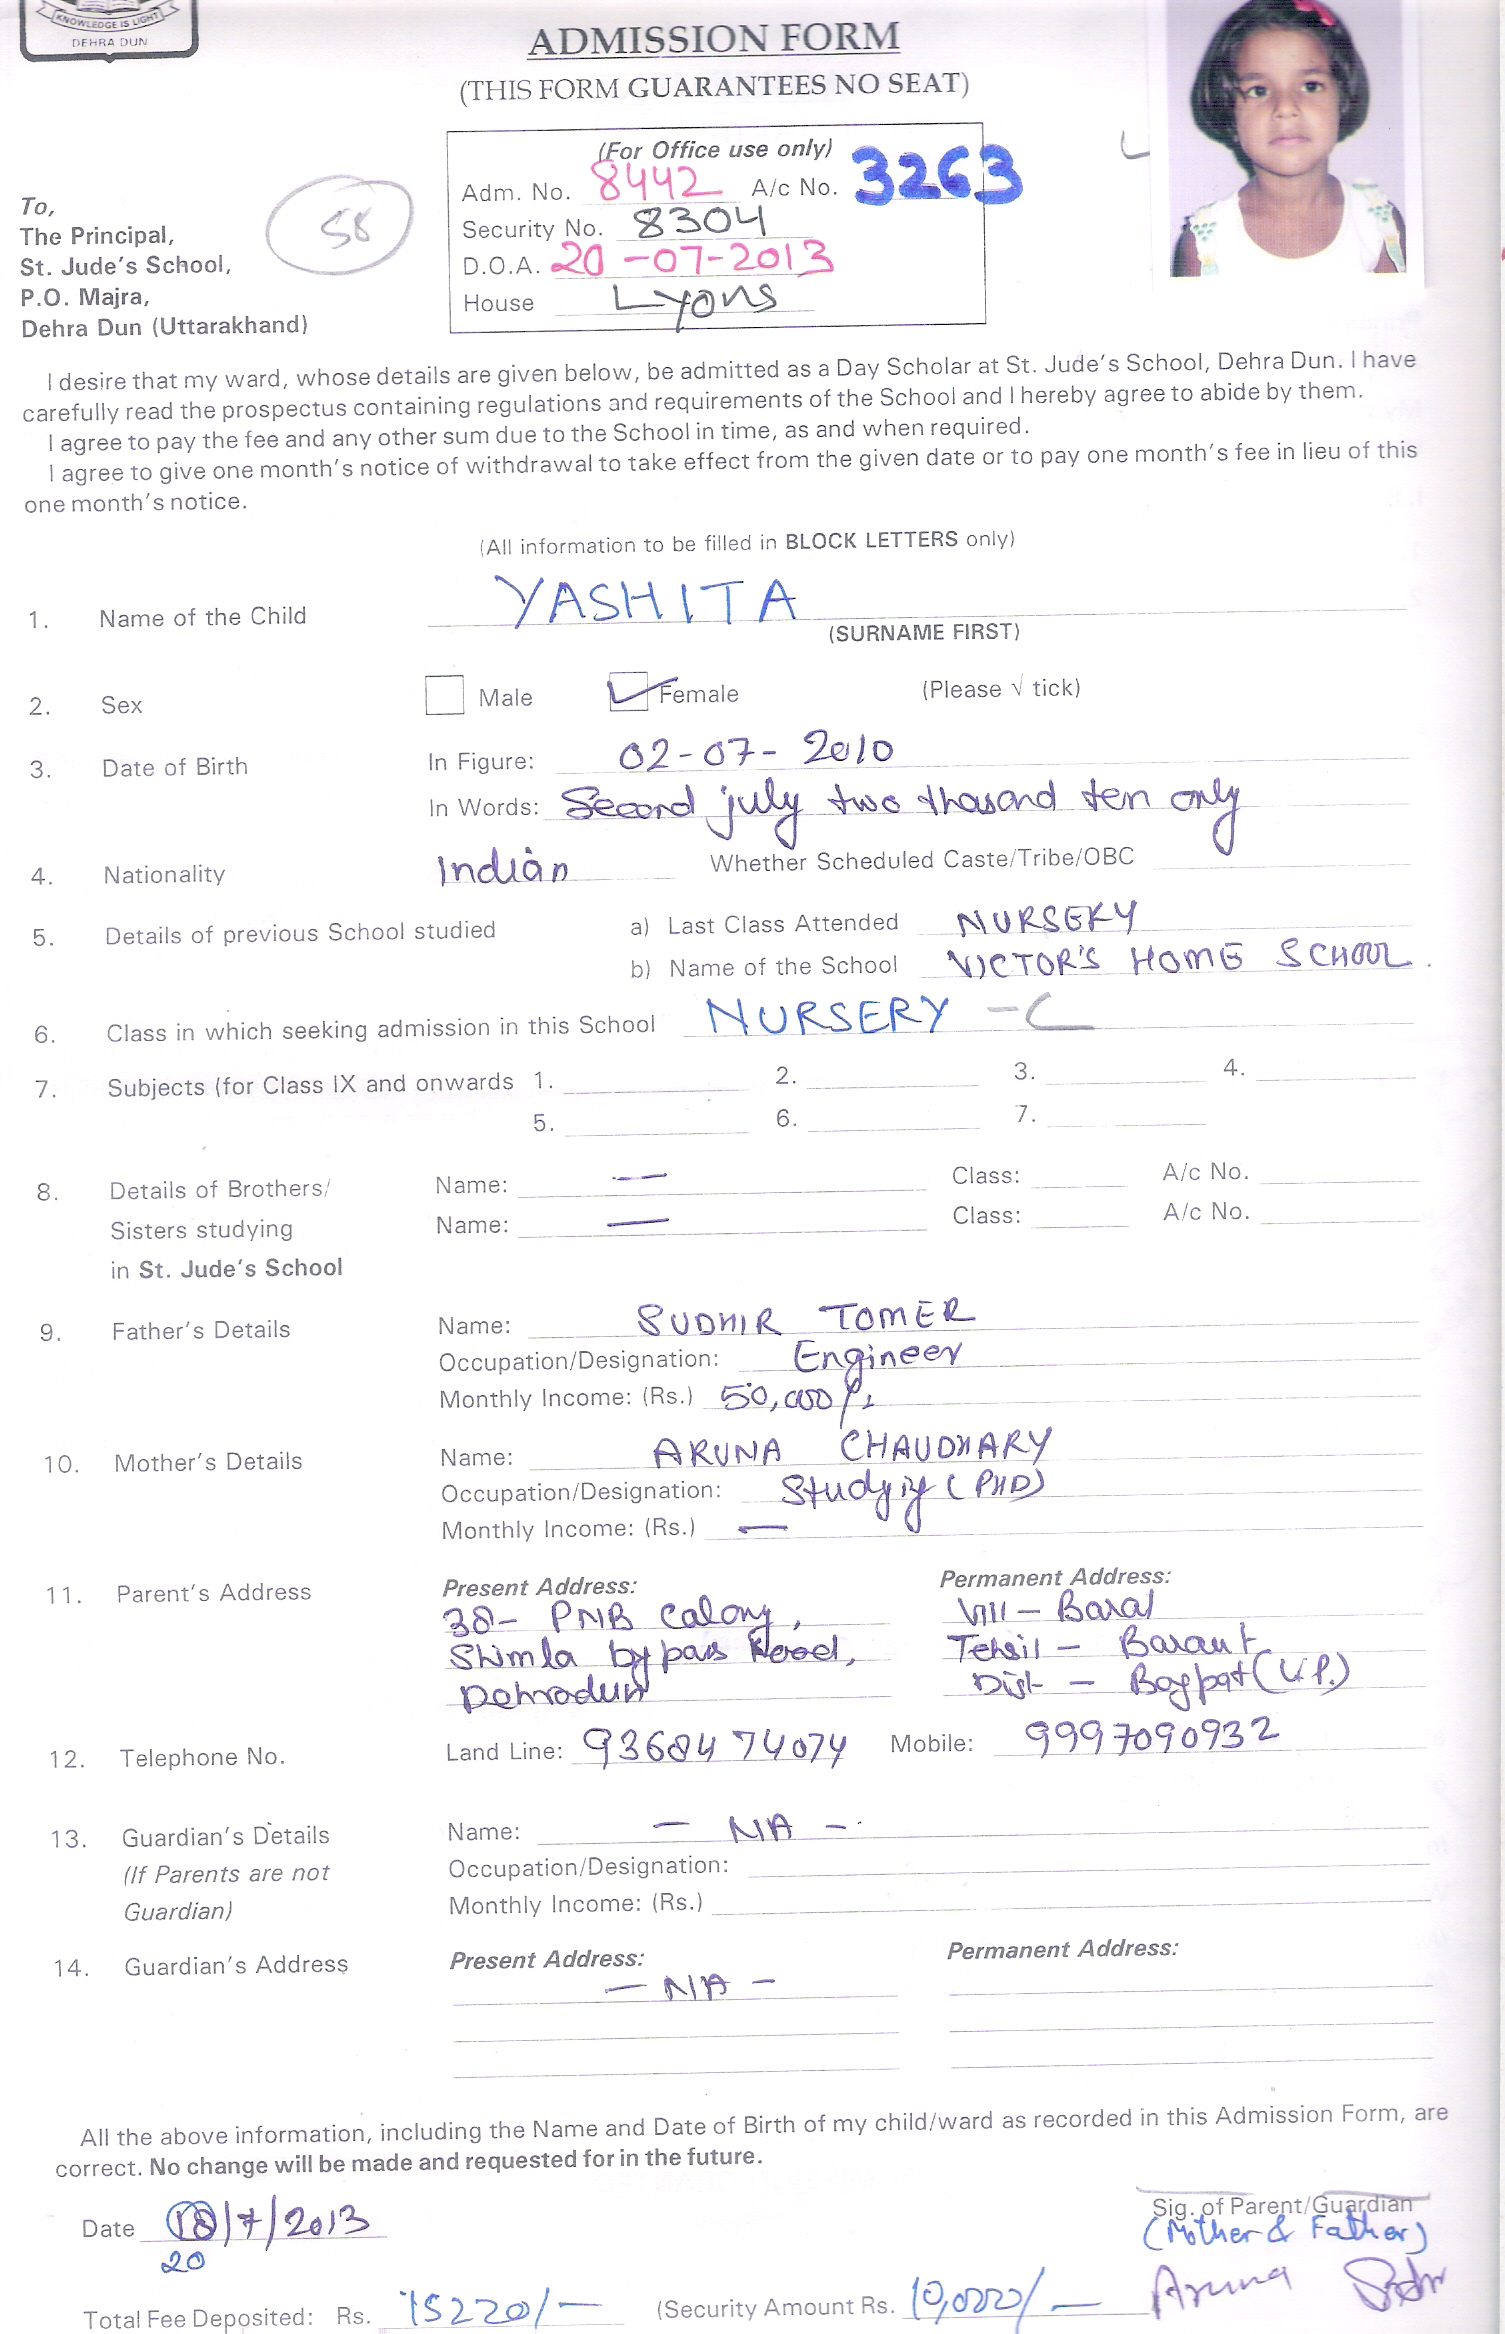 KNOWLEDGE IS LIGHT
DEHRA DUN
ADMISSION FORM
(THIS FORM GUARANTEES NO SEAT)
(For Office use only)
Adm. No. 8442 A/c No. 3263
Security No. 8304
D.O.A. 20-07-2013
House Lyons
58
To,
The Principal,
St. Jude's School,
P.O. Majra,
Dehra Dun (Uttarakhand)
I desire that my ward, whose details are given below, be admitted as a Day Scholar at St. Jude's School, Dehra Dun. I have
carefully read the prospectus containing regulations and requirements of the School and I hereby agree to abide by them.
I agree to pay the fee and any other sum due to the School in time, as and when required.
I agree to give one month's notice of withdrawal to take effect from the given date or to pay one month's fee in lieu of this
one month's notice.
(All information to be filled in BLOCK LETTERS only)
1. Name of the Child YASHITA
(SURNAME FIRST)
2. Sex Male Female (Please √ tick)
3. Date of Birth In Figure: 02-07-2010
In Words: Second july two thousand ten only
4. Nationality Indian Whether Scheduled Caste/Tribe/OBC
5. Details of previous School studied a) Last Class Attended NURSERY
b) Name of the School VICTOR'S HOME SCHOOL.
6. Class in which seeking admission in this School NURSERY -C
7. Subjects (for Class IX and onwards 1. 2. 3. 4.
5. 6. 7.
8. Details of Brothers/ Name: — Class: A/c No.
Sisters studying Name: — Class: A/c No.
in St. Jude's School
9. Father's Details Name: SUDHIR TOMER
Occupation/Designation: Engineer
Monthly Income: (Rs.) 50,000/-
10. Mother's Details Name: ARUNA CHAUDHARY
Occupation/Designation: Studying (PHD)
Monthly Income: (Rs.) —
11. Parent's Address Present Address: Permanent Address:
38- PNB Colony, Vill - Baral
Shimla bypass Road, Tehsil - Baraut
Dehradun Dist - Bagpat (U.P.)
12. Telephone No. Land Line: 9368474074 Mobile: 9997090932
13. Guardian's Details Name: - NA -
(If Parents are not Occupation/Designation:
Guardian) Monthly Income: (Rs.)
14. Guardian's Address Present Address: Permanent Address:
- N/A -
All the above information, including the Name and Date of Birth of my child/ward as recorded in this Admission Form, are
correct. No change will be made and requested for in the future.
Date 18/7/2013 Sig. of Parent/Guardian
20 (Mother & Father)
Total Fee Deposited: Rs. 15220/- (Security Amount Rs. 10,000/- Aruna